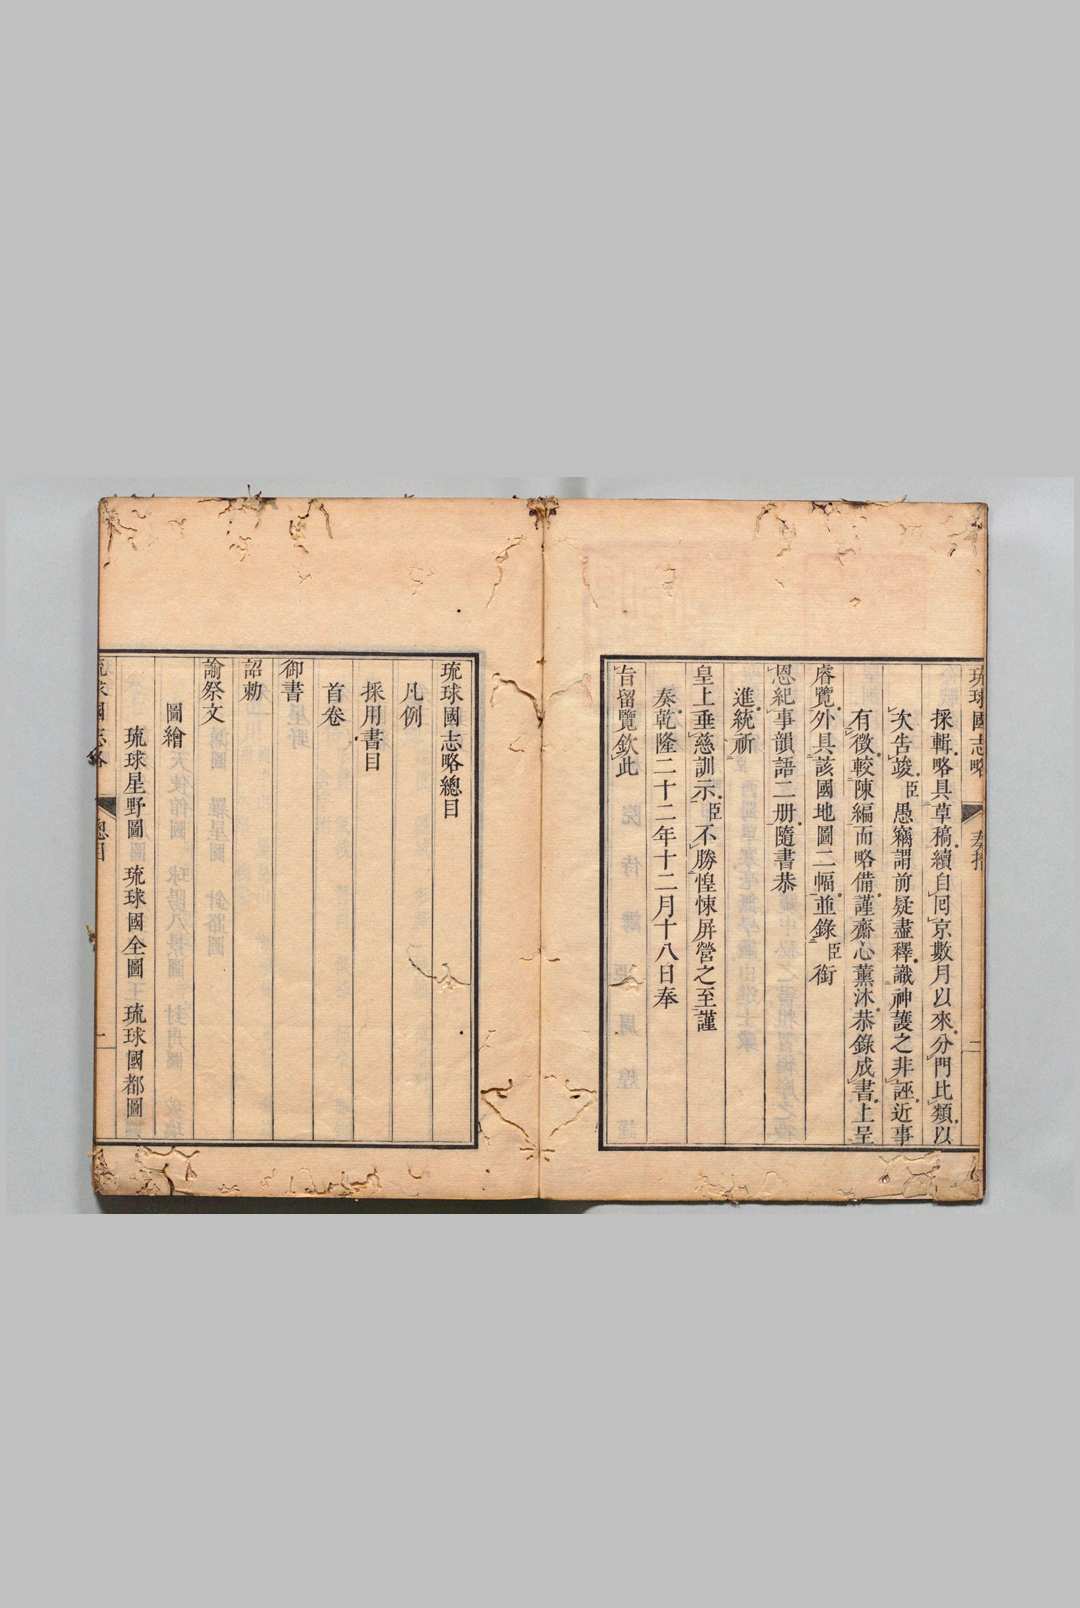 琉球國志略
二
採輯略具草稿續自囘京數月以來分門比類以
次告竣臣愚竊謂前疑盡釋識神護之非誣近事
有徵較陳編而略備謹齋心薰沐恭錄成書上呈
睿覽外具該國地圖二幅並錄臣銜
恩紀事韻語二册隨書恭
進統祈
皇上垂慈訓示臣不勝惶悚屏營之至謹
奏乾隆二十二年十二月十八日奉
旨留覽欽此
琉球國志略總目
凡例
採用書目
首卷
御書
詔勅
諭祭文
圖繪
琉球星野圖 琉球國全圖 琉球國都圖
琉球國志略
總目
一